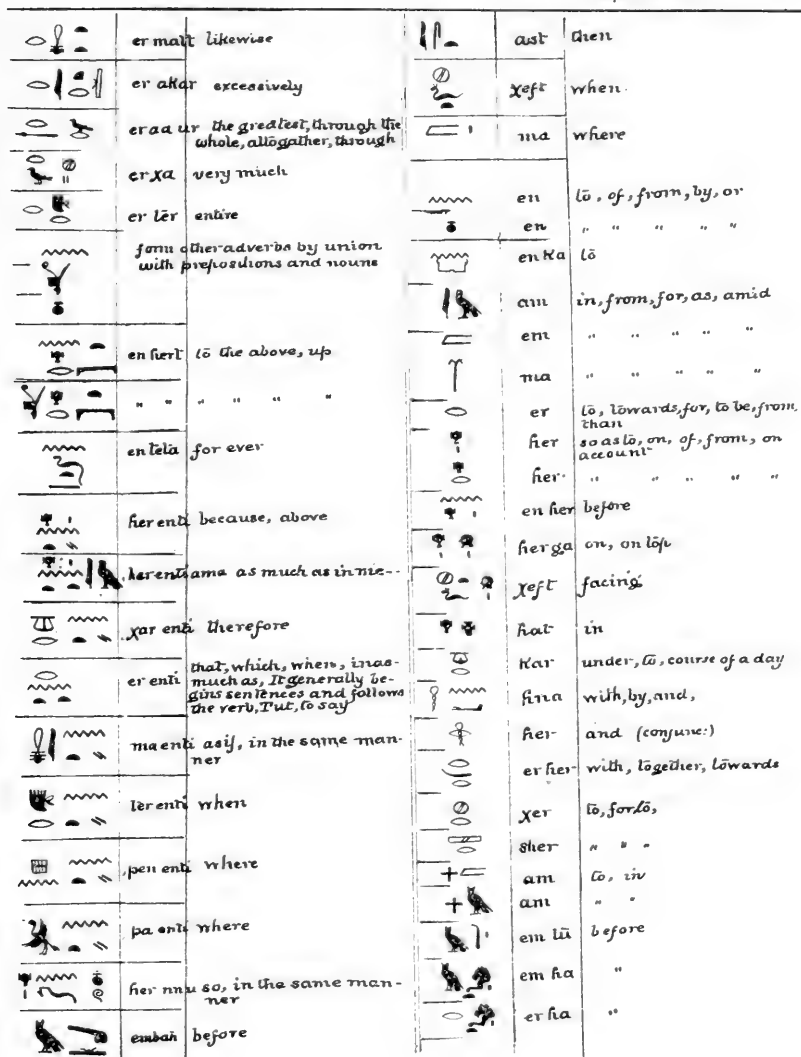 er matt likewise
er akar excessively
er aa ur the greatest, through the
whole, altogather, through
er χa very much
er ter entire
form other adverbs by union
with prepositions and nouns
en hert to the above, up
" " " " " "
en teta for ever
her enti because, above
her enti ama as much as in me--
χar enti therefore
er enti that, which, when, inas-
much as, It generally be-
gins sentences and follows
the verb, Tut, to say
ma enti as if, in the same man-
ner
ter enti when
pen enti where
pa enti where
her nnu so, in the same man-
ner
embah before
ast then
χeft when.
ma where
en to, of, from, by, or
en " " " " "
en Ka to
am in, from, for, as, amid
em " " " " "
ma " " " " "
er to, towards, for, to be, from,
than
her so as to, on, of, from, on
account
her " " " " "
en her before
her ga on, on top
χeft facing
hat in
Kar under, to, course of a day
hna with, by, and,
her and (conjunc:)
er her with, together, towards
χer to, for, to,
sher " " "
am to, in
am " "
em tū before
em ha "
er ha "